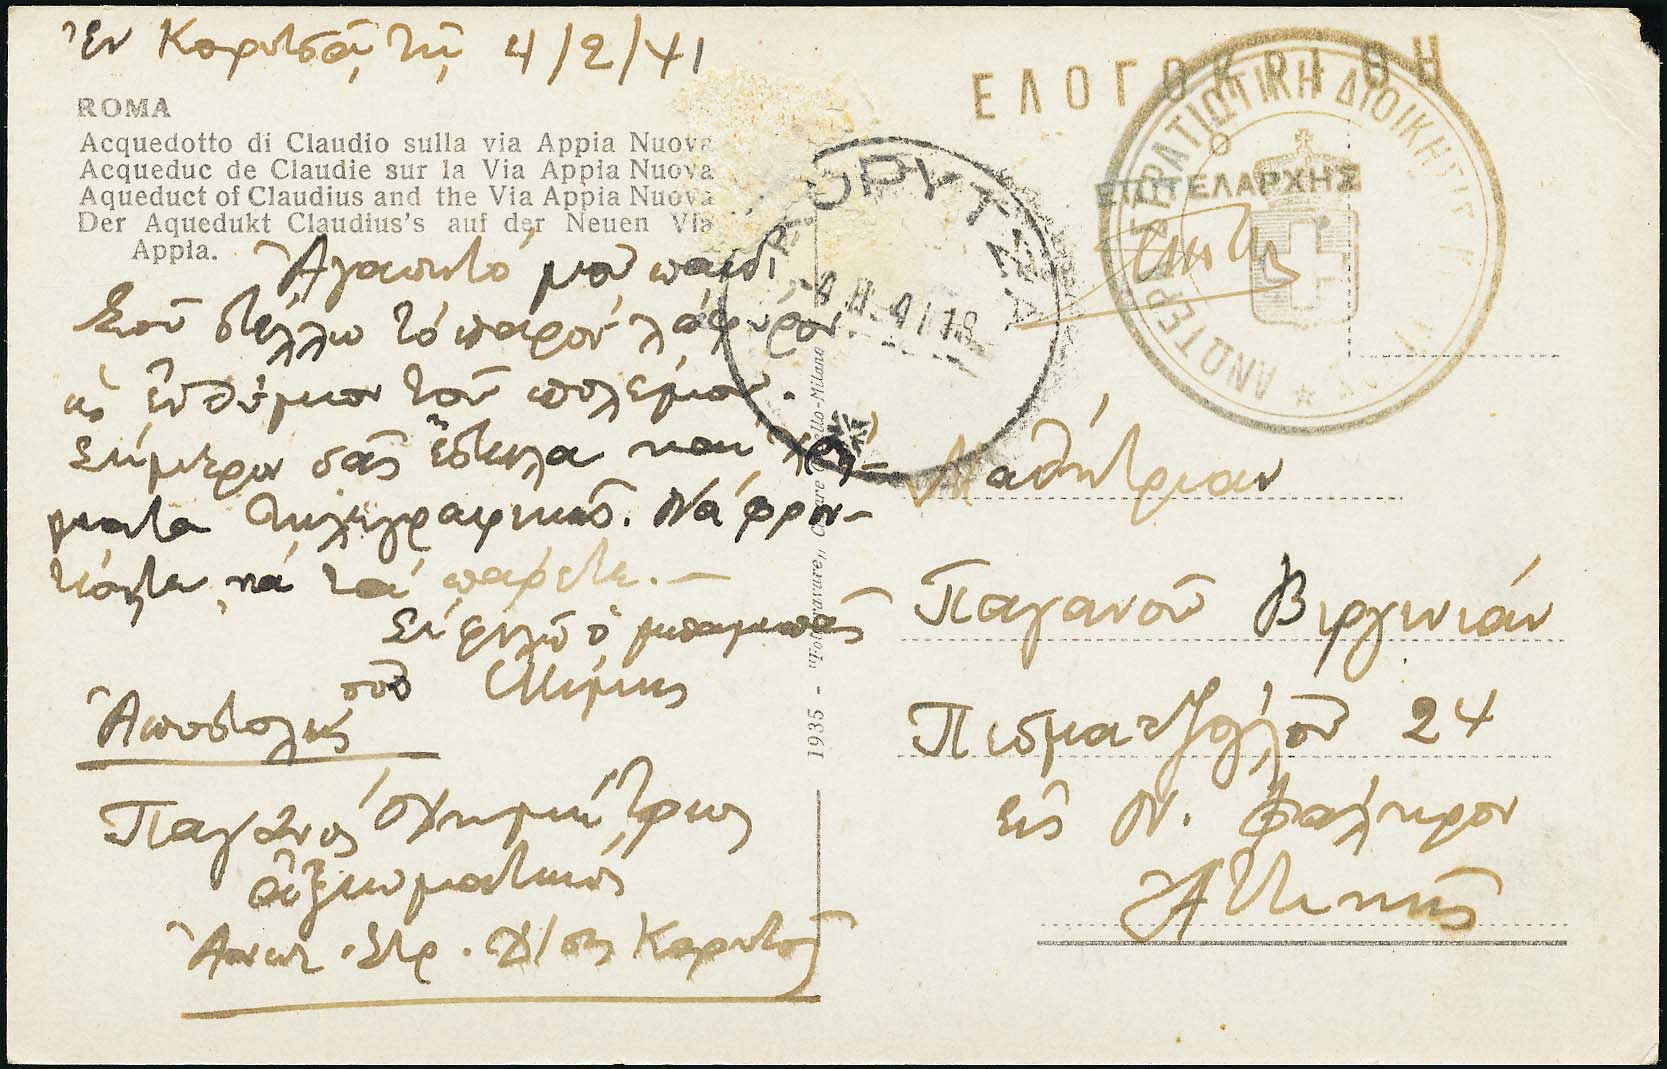 Ἐν Κορυτσᾷ τῇ 4/2/41
ROMA
Acquedotto di Claudio sulla via Appia Nuova
Acqueduc de Claudie sur la Via Appia Nuova
Aqueduct of Claudius and the Via Appia Nuova
Der Aquedukt Claudius's auf der Neuen Via
Appia.
Ἀγαπητό μου παιδί
Σοῦ στέλλω τό παρόν λάφυρον
ὡς ἐνθύμιον τοῦ πολέμου.
Σήμερον σᾶς ἔστειλα καί χρή-
ματα τηλεγραφικῶς. Νά φρον-
τίσητε νά τά πάρετε.—
Σέ φιλῶ ὁ μπαμπᾶς
σου Μίμης
Ἀποστολεύς
Παγάνος Δημήτριος
ἀξιωματικός
Ἀνωτ. Στρ. Δ/σις Κορυτσᾶς
ΚΟΡΥΤΣΑ
4.II.41 18
1935 - "Fotogravure" Cesare Capello-Milano
ΕΛΟΓΟΚΡΙΘΗ
Ο
ΕΠΙΤΕΛΑΡΧΗΣ
ΑΝΩΤΕΡΑ ΣΤΡΑΤΙΩΤΙΚΗ ΔΙΟΙΚΗΣΙΣ
Μαθήτριαν
Παγανοῦ Βιργινίαν
Πεσματζόγλου 24
εἰς Ν. Φάληρον
Ἀττικῆς